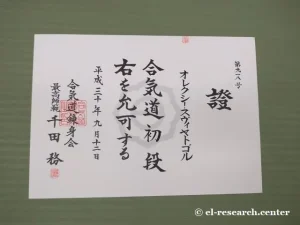 證
第九八号
オレクシー・スヴャトゴル
合氣道 初段
右を允可する
平成三十年九月十二日
合氣道錬身会
最高師範 千田務
© el-research.center